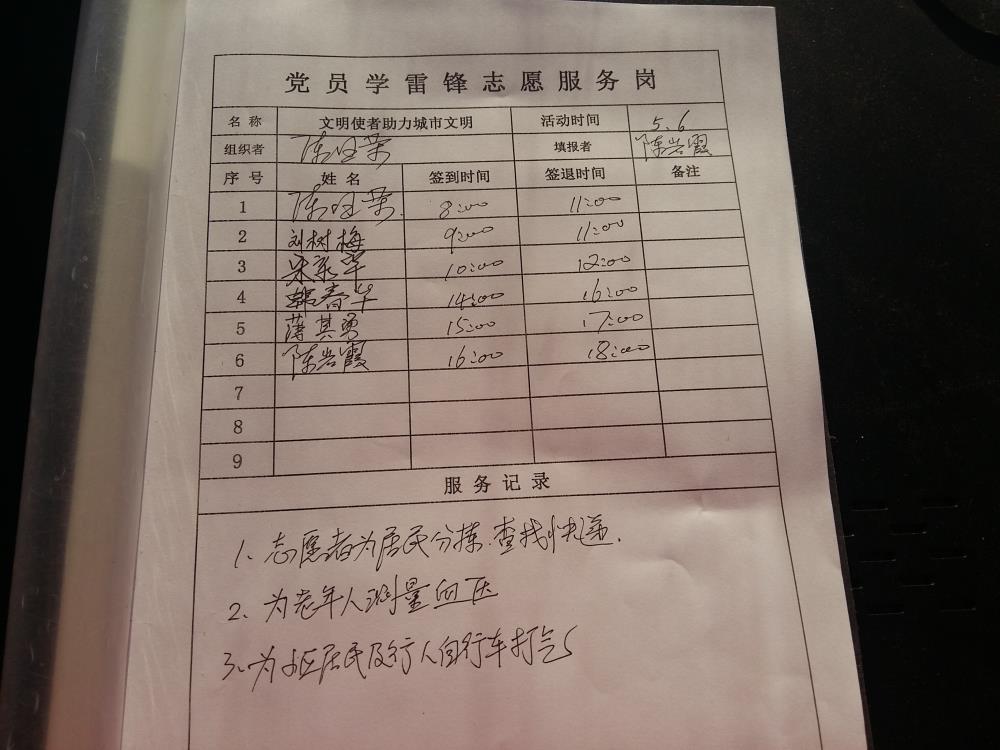 党员学雷锋志愿服务岗
名称 文明使者助力城市文明 活动时间 5.6
组织者 陈旺荣 填报者 陈岩霞
序号 姓名 签到时间 签退时间 备注
1 陈旺荣 8:00 11:00
2 刘树梅 9:00 11:00
3 宋新华 10:00 12:00
4 韩春华 14:00 16:00
5 薄其勇 15:00 17:00
6 陈岩霞 16:00 18:00
7
8
9
服务记录
1. 志愿者为居民分拣、查找快递.
2. 为老年人测量血压
3. 为小区居民及行人自行车打气